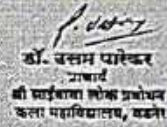 डॉ. उत्तम पारेकर
प्राचार्य
श्री साईबाबा लोक प्रबोधन
कला महाविद्यालय, वडनेर